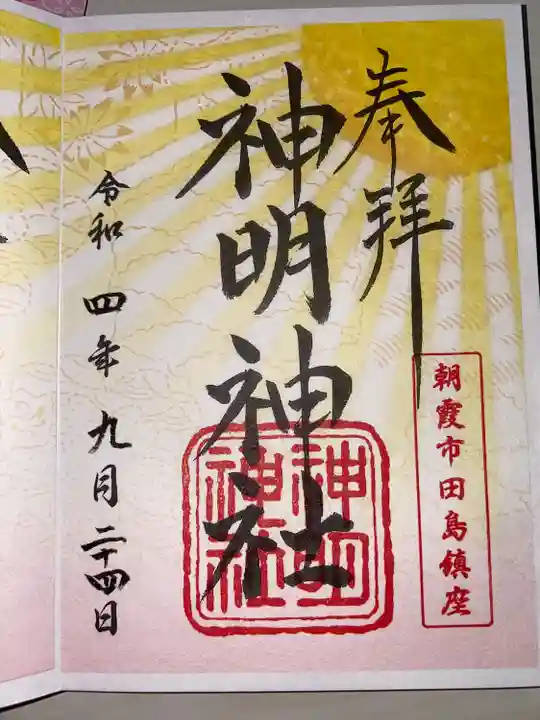 奉拝
朝霞市田島鎮座
神明神社
神明
神社
令和四年九月二十四日